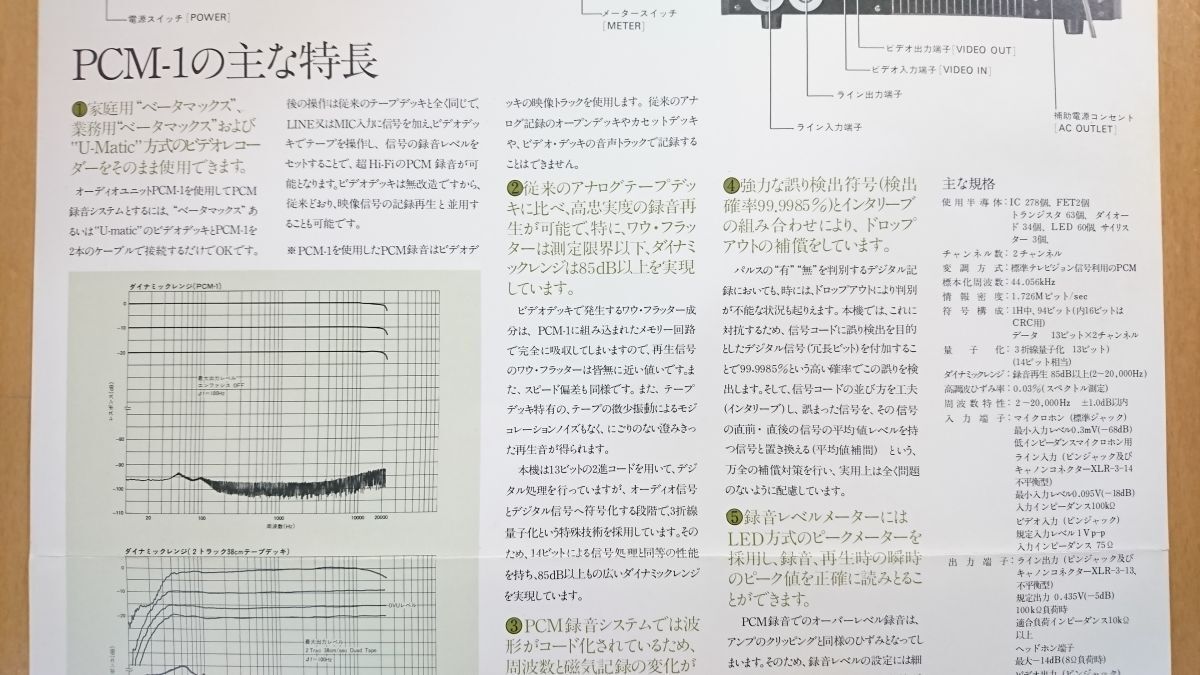 電源スイッチ[POWER]
メータースイッチ
[METER]
ビデオ出力端子[VIDEO OUT]
ビデオ入力端子[VIDEO IN]
ライン出力端子
ライン入力端子
補助電源コンセント
[AC OUTLET]
PCM-1の主な特長
❶家庭用“ベータマックス”、
業務用“ベータマックス”および
“U-Matic”方式のビデオレコー
ダーをそのまま使用できます。
オーディオユニットPCM-1を使用してPCM
録音システムとするには、“ベータマックス”あ
るいは“U-matic”のビデオデッキとPCM-1を
2本のケーブルで接続するだけでOKです。
後の操作は従来のテープデッキと全く同じで、
LINE又はMIC入力に信号を加え、ビデオデッ
キでテープを操作し、信号の録音レベルを
セットすることで、超Hi-FiのPCM録音が可
能となります。ビデオデッキは無改造ですから、
従来どおり、映像信号の記録再生と並用す
ることも可能です。
※PCM-1を使用したPCM録音はビデオデ
ッキの映像トラックを使用します。従来のアナ
ログ記録のオープンデッキやカセットデッキ
や、ビデオ・デッキの音声トラックで記録する
ことはできません。
❷従来のアナログテープデッ
キに比べ、高忠実度の録音再
生が可能で、特に、ワウ・フラッ
ターは測定限界以下、ダイナミ
ックレンジは85dB以上を実現
しています。
ビデオデッキで発生するワウ・フラッター成
分は、PCM-1に組み込まれたメモリー回路
で完全に吸収してしまいますので、再生信号
のワウ・フラッターは皆無に近い値です。ま
た、スピード偏差も同様です。また、テープ
デッキ特有の、テープの微少振動によるモジ
ュレーションノイズもなく、にごりのない澄みきっ
た再生音が得られます。
本機は13ビットの2進コードを用いて、デジ
タル処理を行っていますが、オーディオ信号
とデジタル信号へ符号化する段階で、3折線
量子化という特殊技術を採用しています。その
ため、14ビットによる信号処理と同等の性能
を持ち、85dB以上もの広いダイナミックレンジ
を実現しています。
❸PCM録音システムでは波
形がコード化されているため、
周波数と磁気記録の変化が
❹強力な誤り検出符号(検出
確率99.9985%)とインタリーブ
の組み合わせにより、ドロップ
アウトの補償をしています。
パルスの“有”“無”を判別するデジタル記
録においても、時には、ドロップアウトにより判別
が不能な状況も起ります。本機では、これに
対抗するため、信号コードに誤り検出を目的
としたデジタル信号(冗長ビット)を付加するこ
とで99.9985%という高い確率でこの誤りを検
出します。そして、信号コードの並び方を工夫
(インタリーブ)し、誤まった信号を、その信号
の直前・直後の信号の平均値レベルを持
つ信号と置き換える(平均値補間)という、
万全の補償対策を行い、実用上は全く問題
のないように配慮しています。
❺録音レベルメーターには
LED方式のピークメーターを
採用し、録音、再生時の瞬時
のピーク値を正確に読みとるこ
とができます。
PCM録音でのオーバーレベル録音は、
アンプのクリッピングと同様のひずみとなってし
まいます。そのため、録音レベルの設定には細
主な規格
使用半導体：IC 278個、FET2個
トランジスタ 63個、ダイオー
ド 34個、LED 60個 サイリス
ター 3個、
チャンネル数：2チャンネル
変調方式：標準テレビジョン信号利用のPCM
標本化周波数：44.056kHz
情報密度：1.726Mビット/sec
符号構成：1H中、94ビット(内16ビットは
CRC用)
データ 13ビット×2チャンネル
量子化：3折線量子化 13ビット)
(14ビット相当)
ダイナミックレンジ：録音再生 85dB以上(2~20,000Hz)
高調波ひずみ率：0.03%(スペクトル測定)
周波数特性：2~20,000Hz ±1.0dB以内
入力端子：マイクロホン(標準ジャック)
最小入力レベル0.3mV(-68dB)
低インピーダンスマイクロホン用
ライン入力(ピンジャック及び
キャノンコネクターXLR-3-14
不平衡型)
最小入力レベル0.095V(-18dB)
入力インピーダンス100kΩ
ビデオ入力(ピンジャック)
規定入力レベル1Vp-p
入力インピーダンス 75Ω
出力端子：ライン出力(ピンジャック及び
キャノンコネクターXLR-3-13、
不平衡型)
規定出力 0.435V(-5dB)
100kΩ負荷時
適合負荷インピーダンス10kΩ
以上
ヘッドホン端子
最大-14dB(8Ω負荷時)
ビデオ出力(ピンジャック)
ダイナミックレンジ(PCM-1)
0
-10
-20
-80
-90
-100
-110
最大出力レベル
エンファシス OFF
⊿f=100Hz
20
100
1000
10000
20000
周波数(Hz)
ダイナミックレンジ(2トラック38cmテープデッキ)
0
-10
-20
0VUレベル
最大出力レベル
2Trac 38cm/sec Quad Tape
⊿f=100Hz